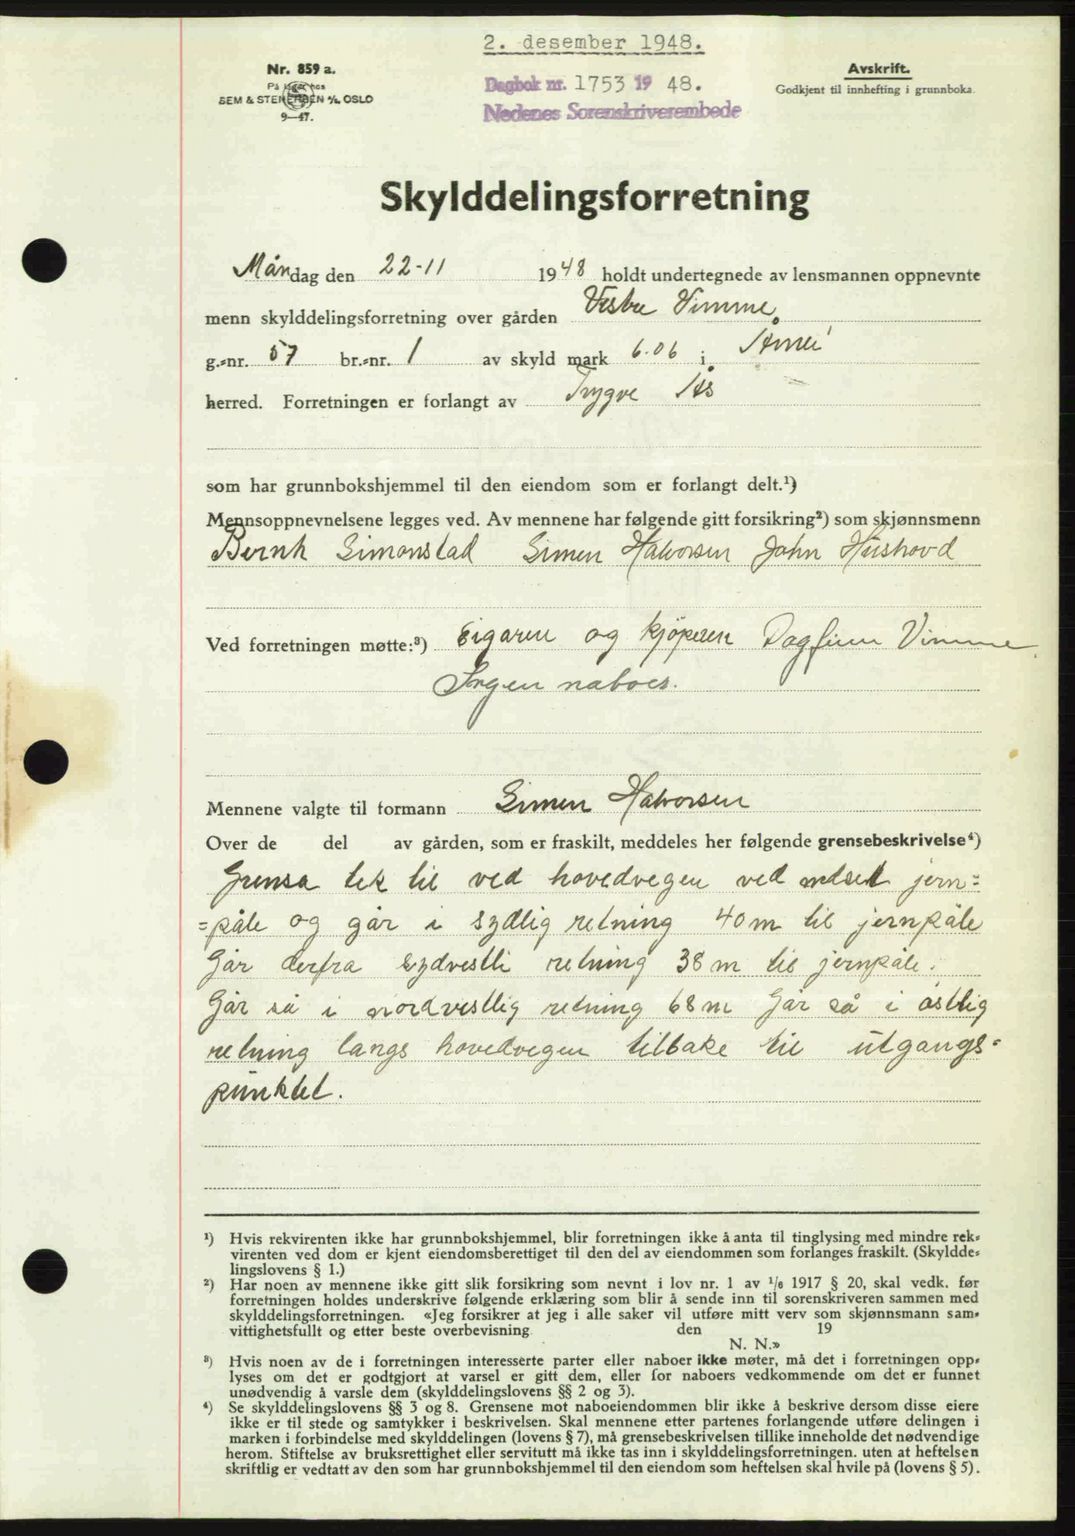 2. desember 1948.
Nr. 859 a.
På lager hos
SEM & STENERSEN A/S, OSLO
9—47.
Avskrift.
Godkjent til innhefting i grunnboka.
Dagbok nr. 1753 19 48.
Nedenes Sorenskriverembede
Skylddelingsforretning
Måndag den 22-11 1948 holdt undertegnede av lensmannen oppnevnte
menn skylddelingsforretning over gården Vestre Vimme
g.-nr. 57 br.-nr. 1 av skyld mark 6.06 i Åmli
herred. Forretningen er forlangt av Trygve Ås
som har grunnbokshjemmel til den eiendom som er forlangt delt.¹)
Mennsoppnevnelsene legges ved. Av mennene har følgende gitt forsikring²) som skjønnsmenn
Bernh Simonstad Simen Halvorsen John Hüshovd
Ved forretningen møtte:³) Eigaren og kjöperen Dagfinn Vimme.
Ingen naboer.
Mennene valgte til formann Simen Halvorsen
Over de del av gården, som er fraskilt, meddeles her følgende grensebeskrivelse⁴)
Grensa tek til ved hovedvegen ved nedset jern=
=påle og går i sydlig retning 40 m til jernpåle
Går derfra sydvestli retning 38 m til jernpåle.
Går så i nordvestlig retning 68 m Går så i östlig
retning langs hovedvegen tilbake til utgangs=
punktet.
¹) Hvis rekvirenten ikke har grunnbokshjemmel, blir forretningen ikke å anta til tinglysing med mindre rek-
virenten ved dom er kjent eiendomsberettiget til den del av eiendommen som forlanges fraskilt. (Skyldde-
lingslovens § 1.)
²) Har noen av mennene ikke gitt slik forsikring som nevnt i lov nr. 1 av 1/6 1917 § 20, skal vedk. før
forretningen holdes underskrive følgende erklæring som blir å sende inn til sorenskriveren sammen med
skylddelingsforretningen. «Jeg forsikrer at jeg i alle saker vil utføre mitt verv som skjønnsmann sam-
vittighetsfullt og etter beste overbevisning den 19
N. N.»
³) Hvis noen av de i forretningen interesserte parter eller naboer ikke møter, må det i forretningen opp-
lyses om det er godtgjort at varsel er gitt dem, eller for naboers vedkommende om det er funnet
unødvendig å varsle dem (skylddelingslovens §§ 2 og 3).
⁴) Se skylddelingslovens §§ 3 og 8. Grensene mot naboeiendommen blir ikke å beskrive dersom disse eiere
ikke er til stede og samtykker i beskrivelsen. Skal mennene etter partenes forlangende utføre delingen i
marken i forbindelse med skylddelingen (lovens § 7), må grensebeskrivelsen tillike inneholde det nødvendige
herom. Stiftelse av bruksrettighet eller servitutt må ikke tas inn i skylddelingsforretningen. uten at heftelsen
skriftlig er vedtatt av den som har grunnbokshjemmel til den eiendom som heftelsen skal hvile på (lovens § 5).